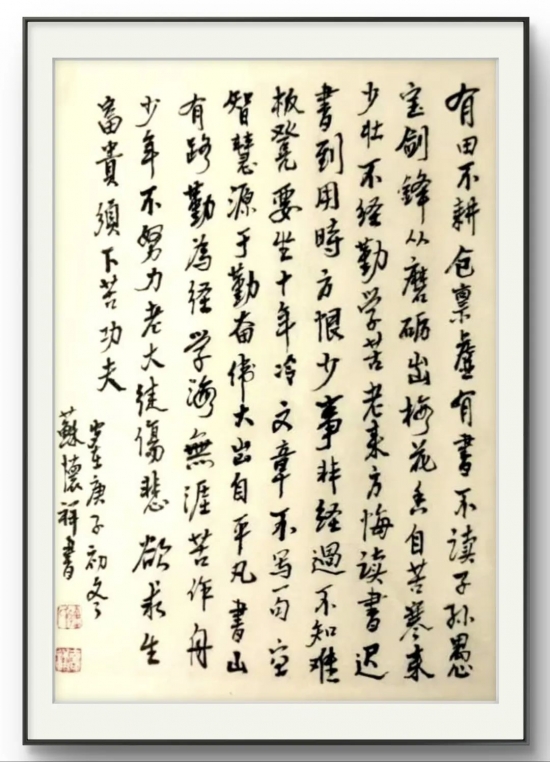 有田不耕仓禀虚有書不读子孙愚
宝剑鋒从磨砺出梅花香自苦寒来
少壮不经勤学苦老来方悔读書迟
書到用時方恨少事非经過不知难
板凳要坐十年冷文章不写一句空
智慧源于勤奋伟大出自平凡書山
有路勤為径学海無涯苦作舟
少年不努力老大徒傷悲欲求生
富貴須下苦功夫
岁在庚子初冬
蘇懷祥書